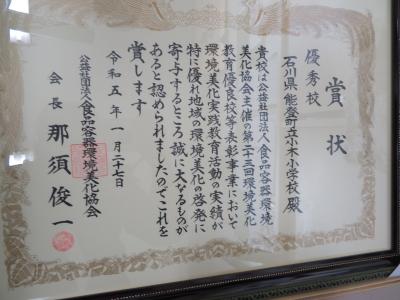 賞状
優秀校
石川県 能登町立小木小学校殿
貴校は公益社団法人食品容器環境
美化協会主催の第二十三回環境美化
教育優良校等表彰事業において
環境美化実践教育活動の実績が
特に優れ地域の環境美化の啓発に
寄与するところ誠に大なるものが
あると認められましたのでこれを
賞します
令和五年一月二十七日
公益社団法人食品容器環境美化協会
会長 那須俊一